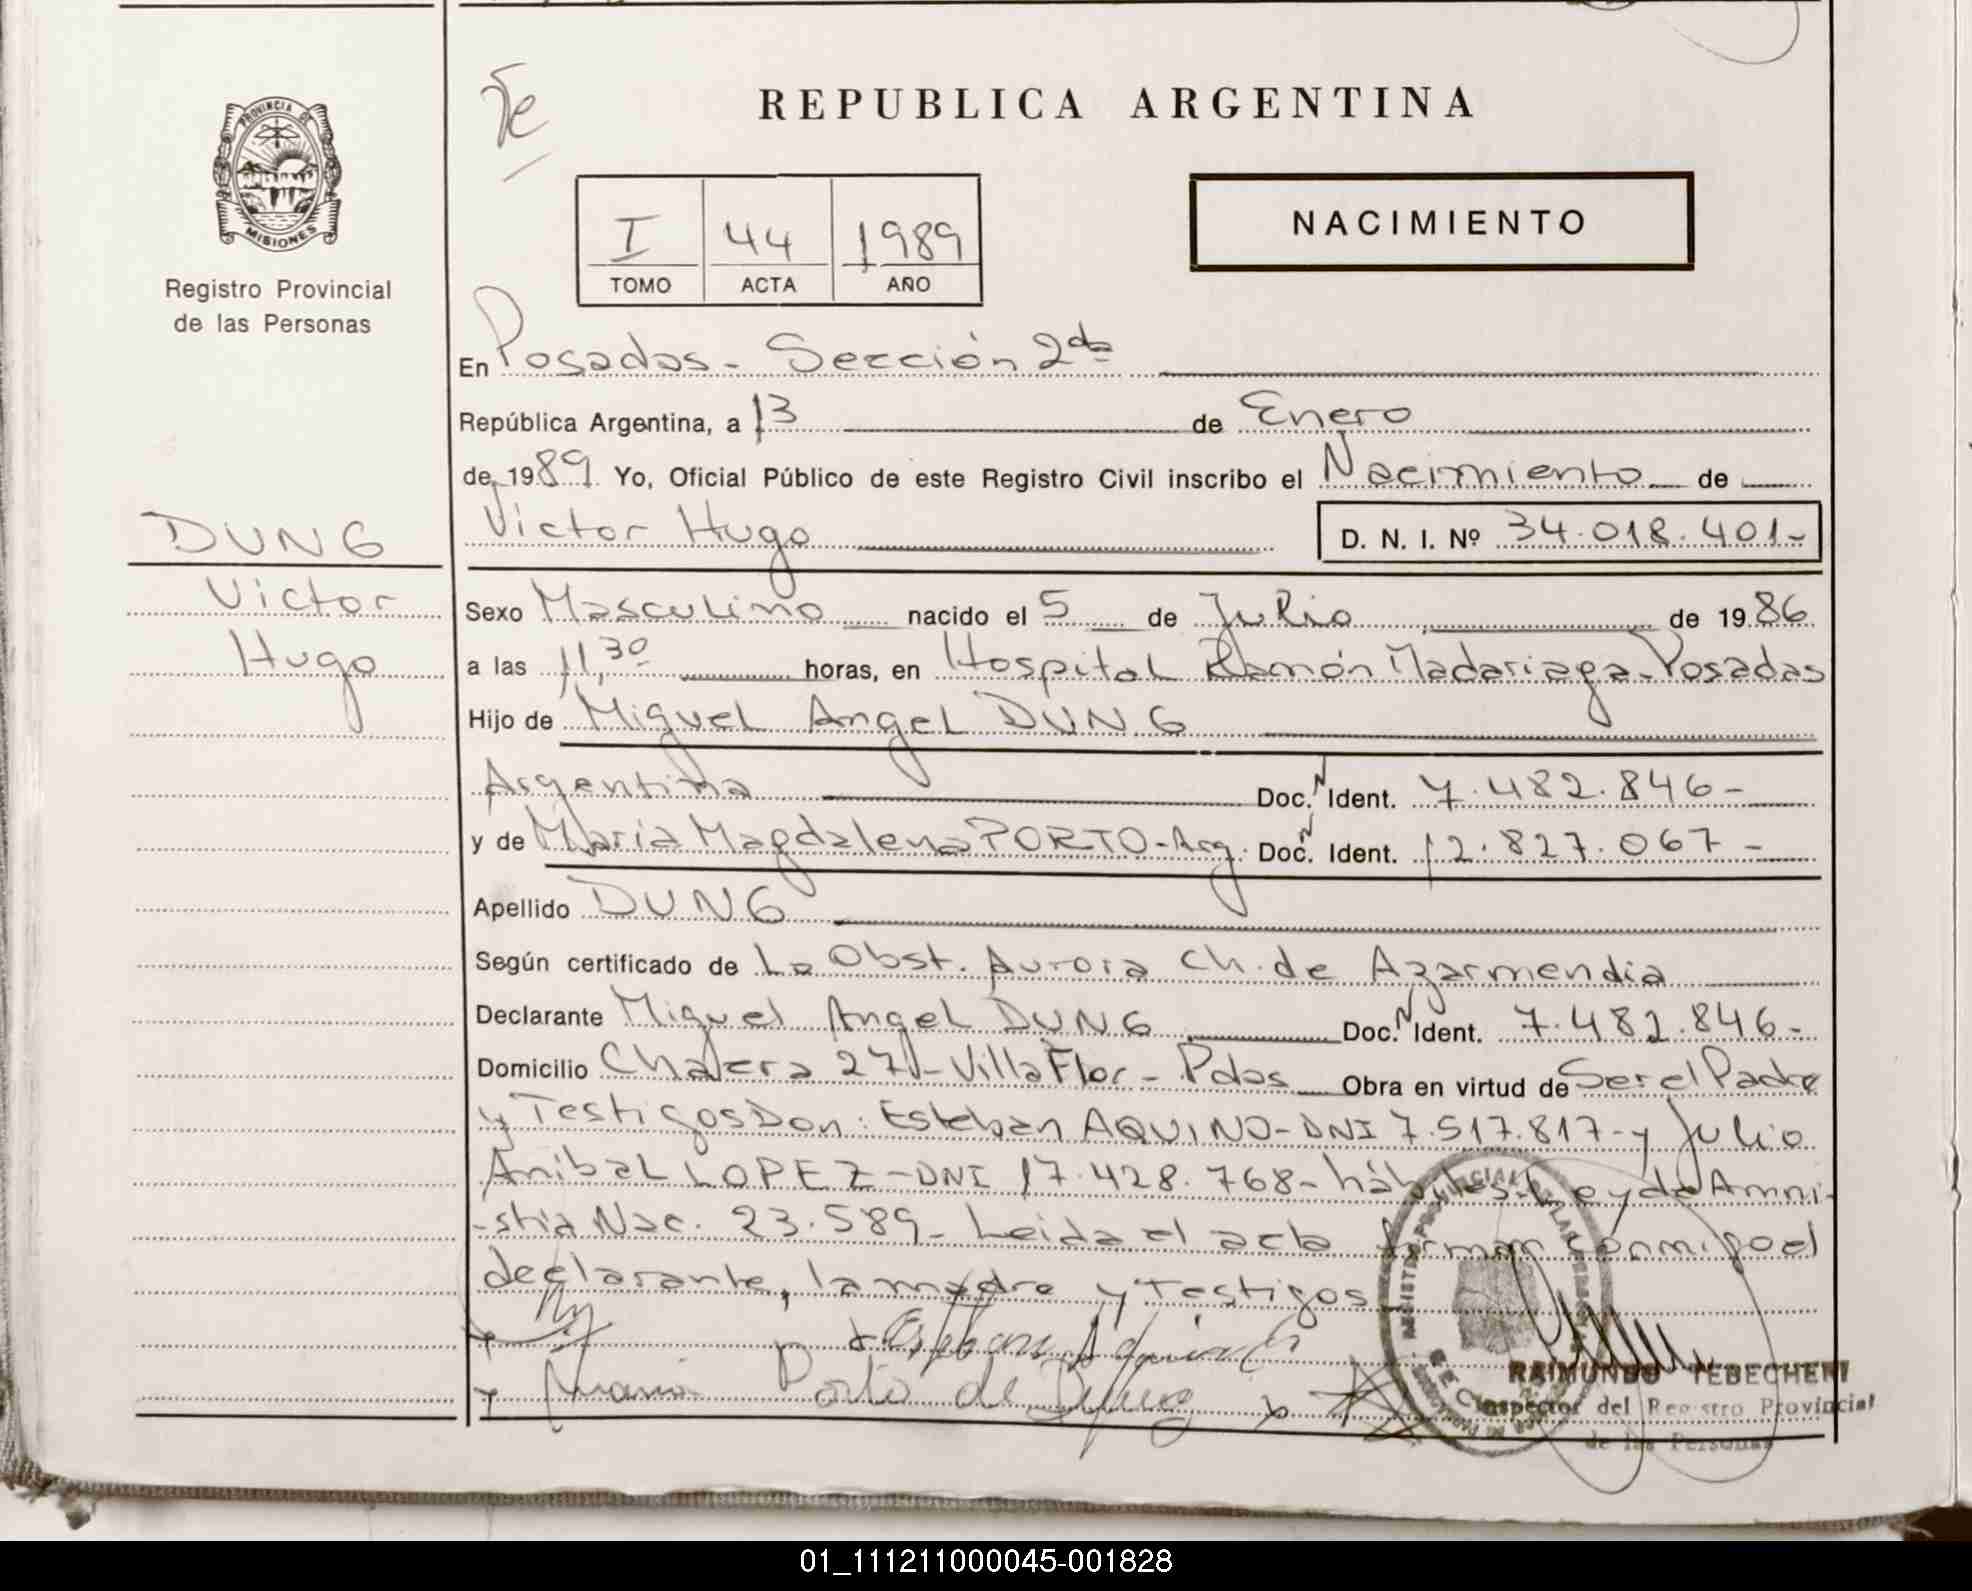 PROVINCIA DE
MISIONES
Registro Provincial
de las Personas
DUNG
Victor
Hugo
REPUBLICA ARGENTINA
I 44 1989
TOMO ACTA AÑO
NACIMIENTO
En Posadas - Sección 2da
República Argentina, a 13 de Enero
de 1989. Yo, Oficial Público de este Registro Civil inscribo el Nacimiento de
Victor Hugo D. N. I. Nº 34.018.401-
Sexo Masculino nacido el 5 de Julio de 1986
a las 11,30 horas, en Hospital Ramón Madariaga - Posadas
Hijo de Miguel Angel DUNG
Argentina Doc. N Ident. 7.482.846-
y de Maria Magdalena PORTO - Arg. Doc. N Ident. 12.827.067-
Apellido DUNG
Según certificado de La Obst. Aurora Ch. de Azarmendia
Declarante Miguel Angel DUNG Doc. N Ident. 7.482.846-
Domicilio 271 - Villa Flor - Pdas Obra en virtud de Ser el Padre
y Testigos Don: Esteban AQUINO - DNI 7.517.817 - y Julio
Anibal LOPEZ - DNI 17.428.768 - hábiles - Ley de Amni-
-stia Nac. 23.589 - Leida el acta firman conmigo el
declarante, la madre y Testigos
Esteban Aquino
Maria Porto de Dung
RAIMUNDO TEBECHERI
Inspector del Registro Provincial
de las Personas
01_111211000045-001828